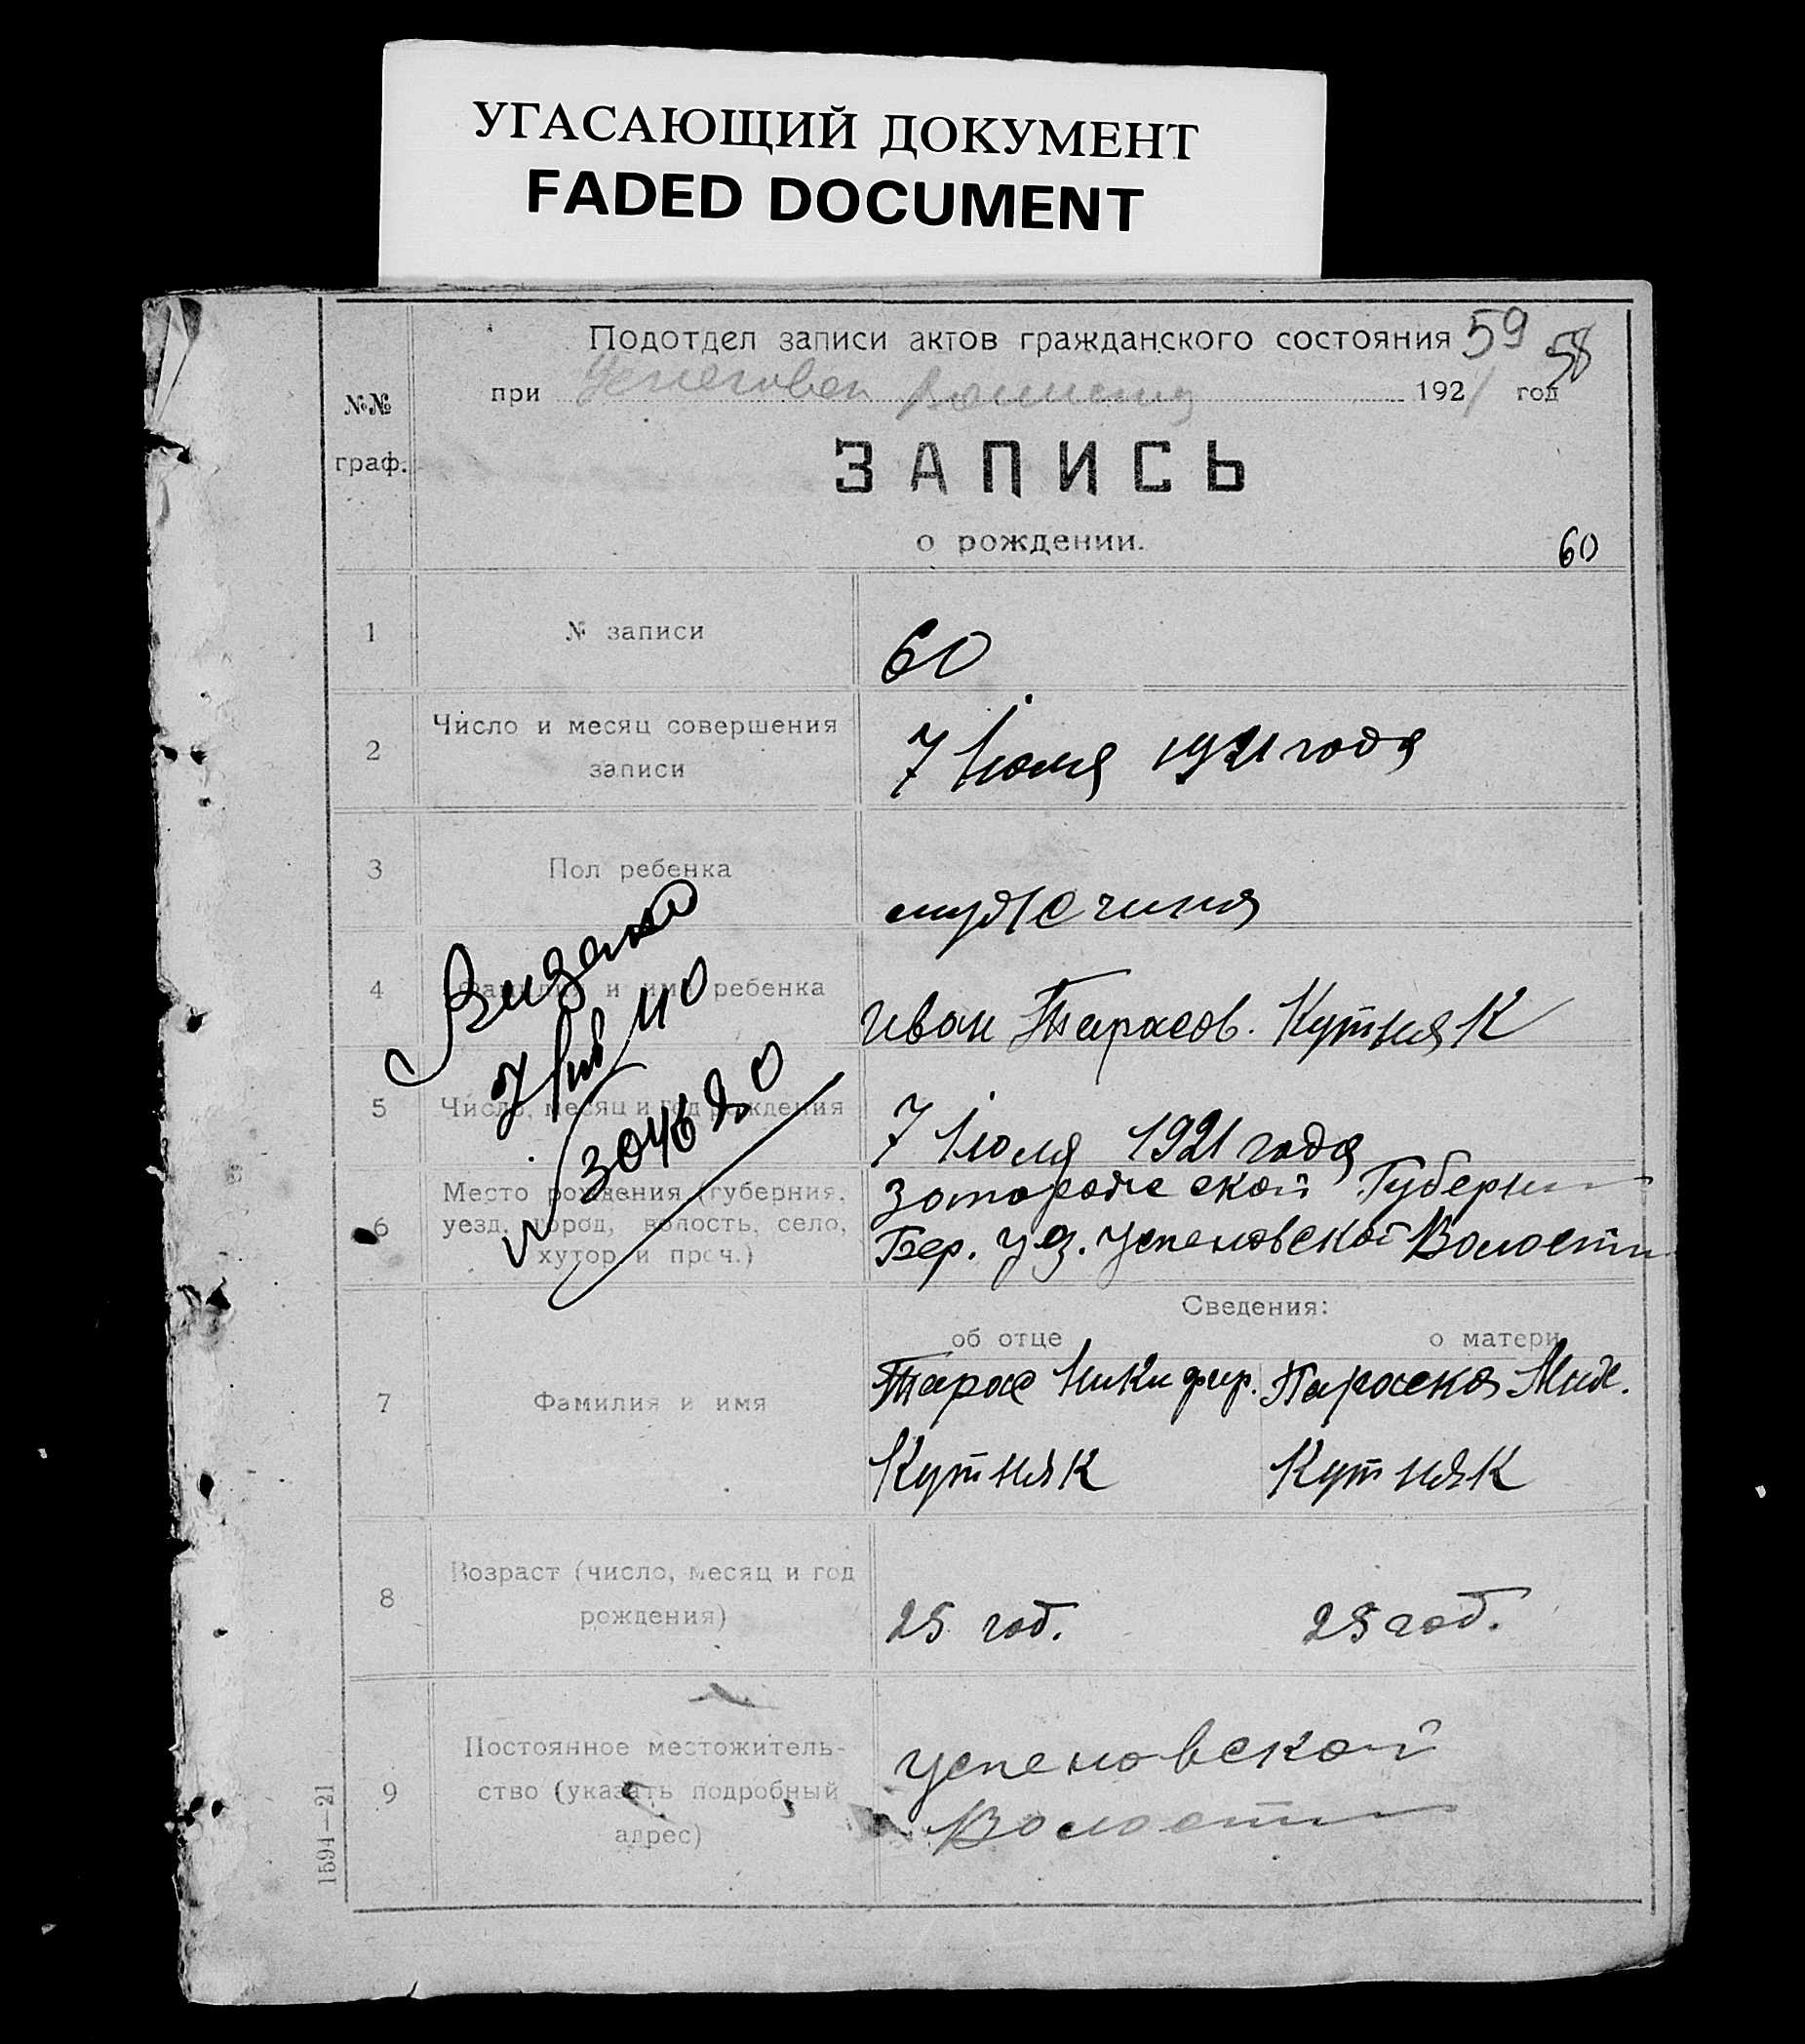 УГАСАЮЩИЙ ДОКУМЕНТ
FADED DOCUMENT
Подотдел записи актов гражданского состояния 59
58
при Успеновск Волости 1921 год
№№
граф.
ЗАПИСЬ
о рождении.
60
1 № записи 60
2 Число и месяц совершения
записи
7 Июля 1921 года
3 Пол ребенка мужчина
4 Фамилия и имя ребенка Иван Тарасов. Кутняк
5 Число, месяц и год рождения 7 Июля 1921 года
6 Место рождения (губерния,
уезд, город, волость, село,
хутор и проч.)
Запорожской Губернии
Бер. уез. Успеновской Волости
Видано
40
304680
Сведения:
об отце о матери
7 Фамилия и имя
Тарас Никифир. Параска Мих.
Кутняк Кутняк
8 Возраст (число, месяц и год
рождения)
25 год. 25 год.
9 Постоянное местожитель-
ство (указать подробный
адрес)
Успеновской
Волости
1594—21